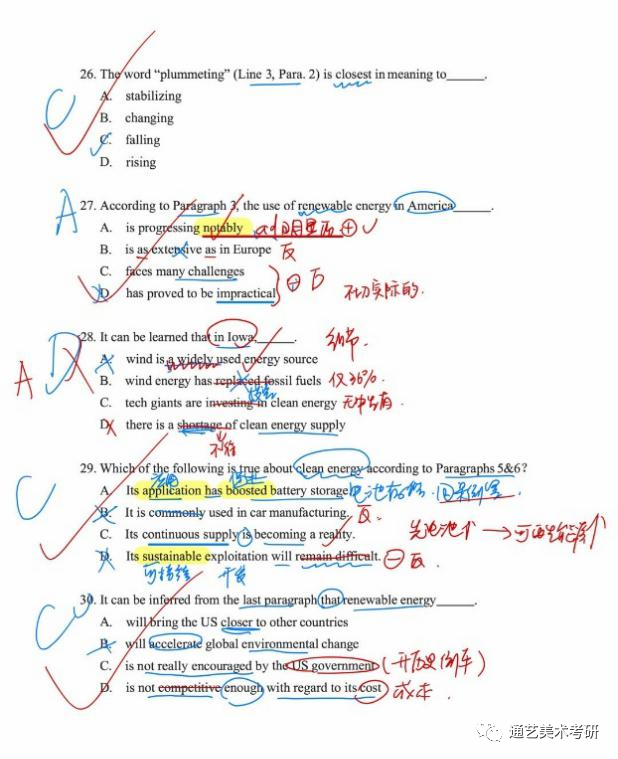 26. The word “plummeting” (Line 3, Para. 2) is closest in meaning to______.
A. stabilizing
C
B. changing
C. falling
D. rising
A
27. According to Paragraph 3, the use of renewable energy in America______.
A. is progressing notably
B. is as extensive as in Europe 反
C. faces many challenges
D. has proved to be impractical 不切实际的.
28. It can be learned that in Iowa,______.
A D
A. wind is a widely used energy source
B. wind energy has replaced fossil fuels 仅36%.
C. tech giants are investing in clean energy 无中生有.
D. there is a shortage of clean energy supply
29. Which of the following is true about clean energy according to Paragraphs 5&6?
C
A. Its application has boosted battery storage.
B. It is commonly used in car manufacturing. 反.
C. Its continuous supply is becoming a reality.
D. Its sustainable exploitation will remain difficult. 反.
可持续 开发
30. It can be inferred from the last paragraph that renewable energy______.
C
A. will bring the US closer to other countries
B. will accelerate global environmental change
C. is not really encouraged by the US government (开历史倒车)
D. is not competitive enough with regard to its cost 成本.
通艺美术考研